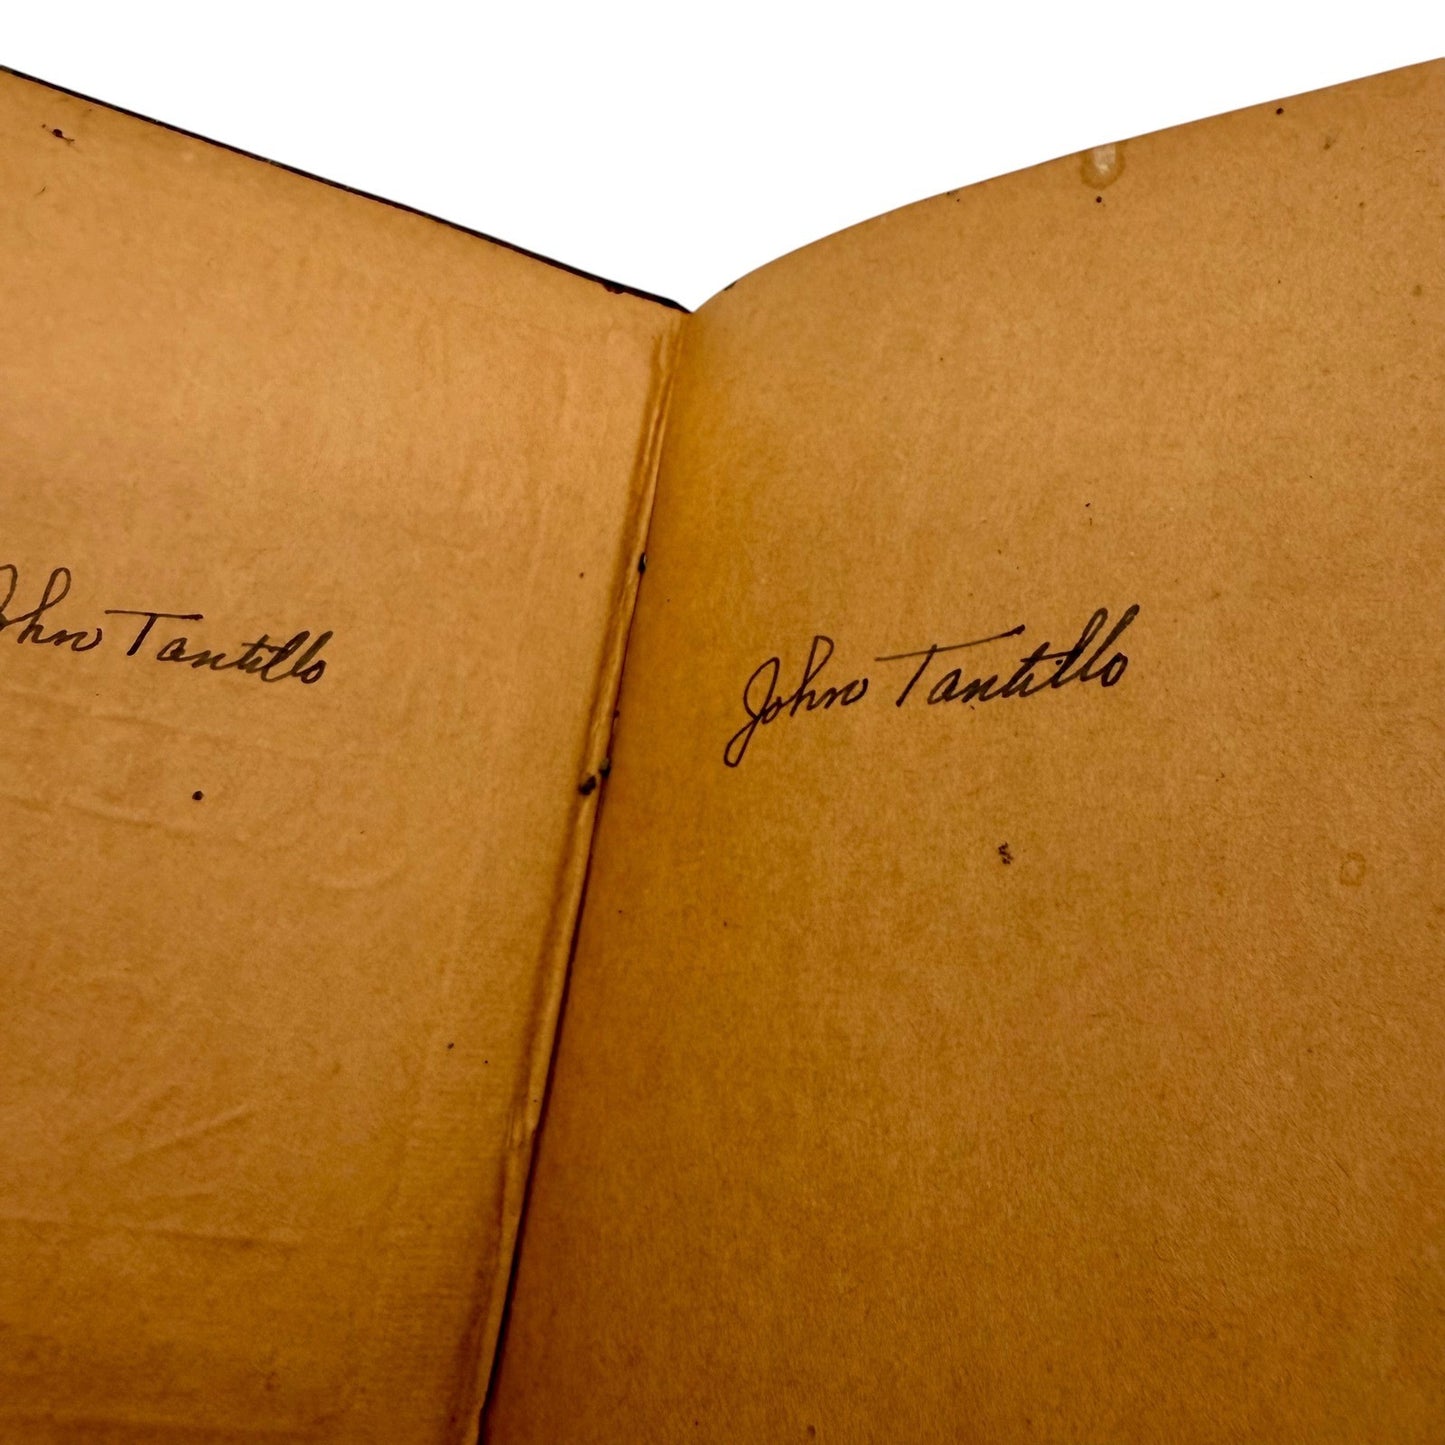 John Tantillo
John Tantillo